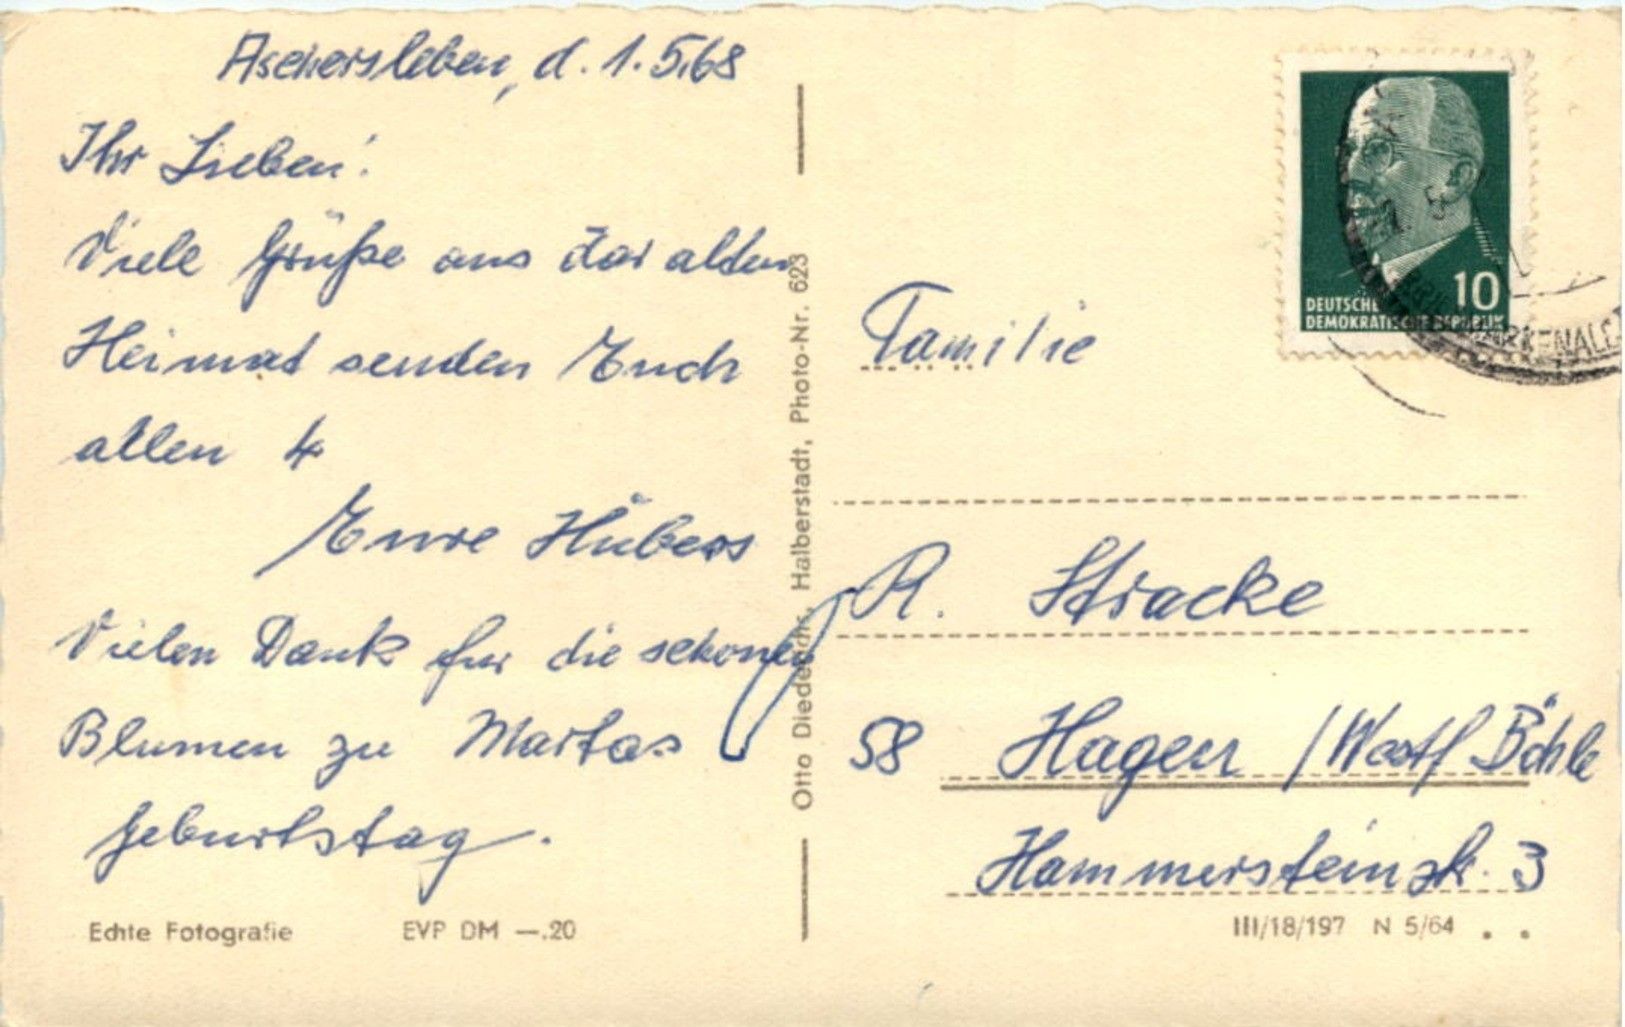 Aschersleben, d. 1.5.68
Ihr Lieben!
Viele Grüße aus der alten
Heimat senden Euch
allen 4
Eure Hübers
Vielen Dank für die schönen
Blumen zu Martas
Geburtstag.
Echte Fotografie EVP DM —.20
Otto Diederich, Halberstadt, Photo-Nr. 623
10
DEUTSCHE
DEMOKRATISCHE REPUBLIK
Familie
R. Stracke
58 Hagen /Westf Böhle
Hammersteinstr. 3
III/18/197 N 5/64